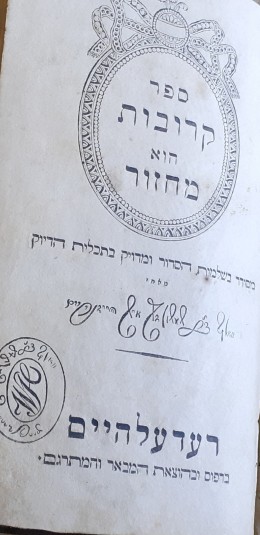 ספר
קרובות
הוא
מחזור
מסודר בשלמות הסדור ומדויק בתכלית הדיוק
מאתי
רעדעלהיים
בדפוס ובהוצאת המבאר והמתרגם